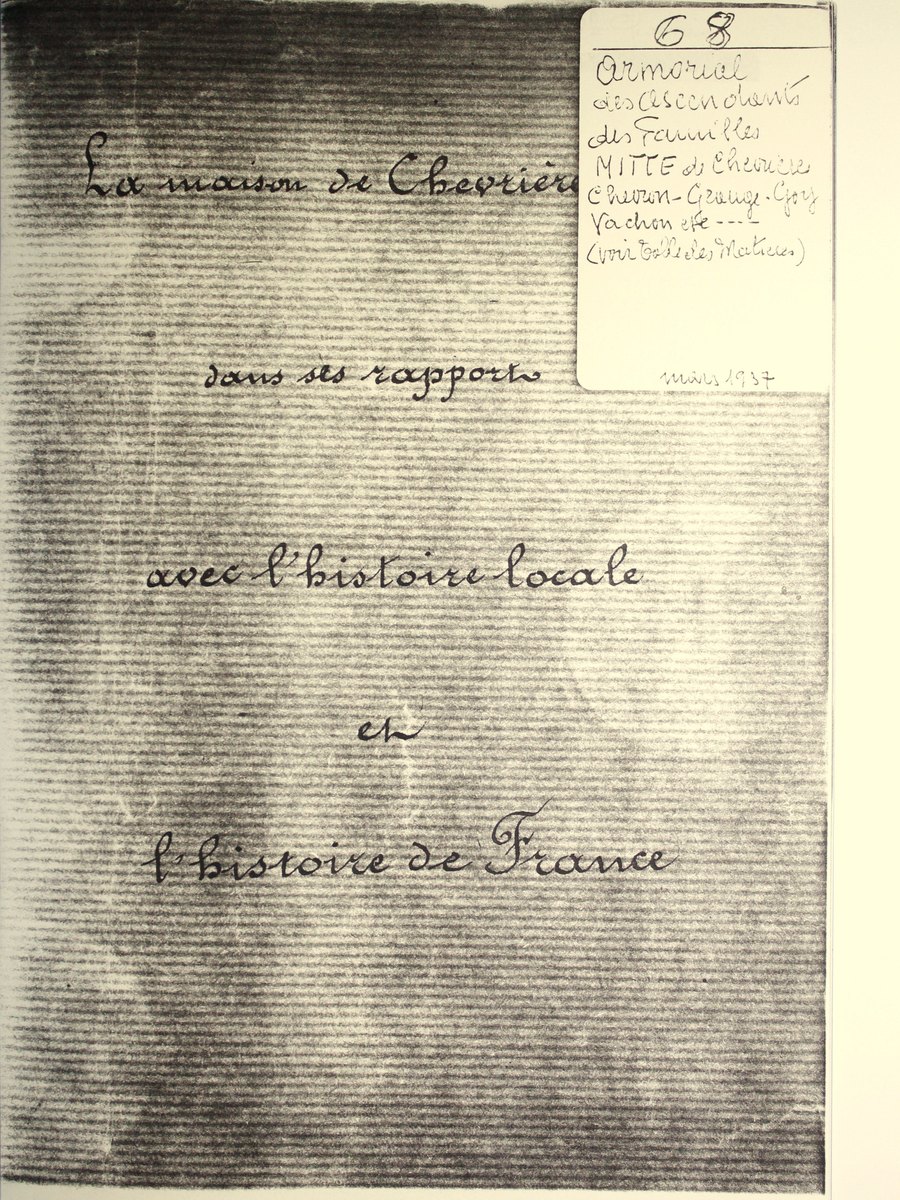 La maison de Chevrière
dans ses rapports
avec l'histoire locale
et
l'histoire de France
68
Armorial
des Ascendants
des Familles
MITTE de Chevrière
Chevron - Grange - Goy
Vachon etc ----
(voir table des Matieres)
mars 1937